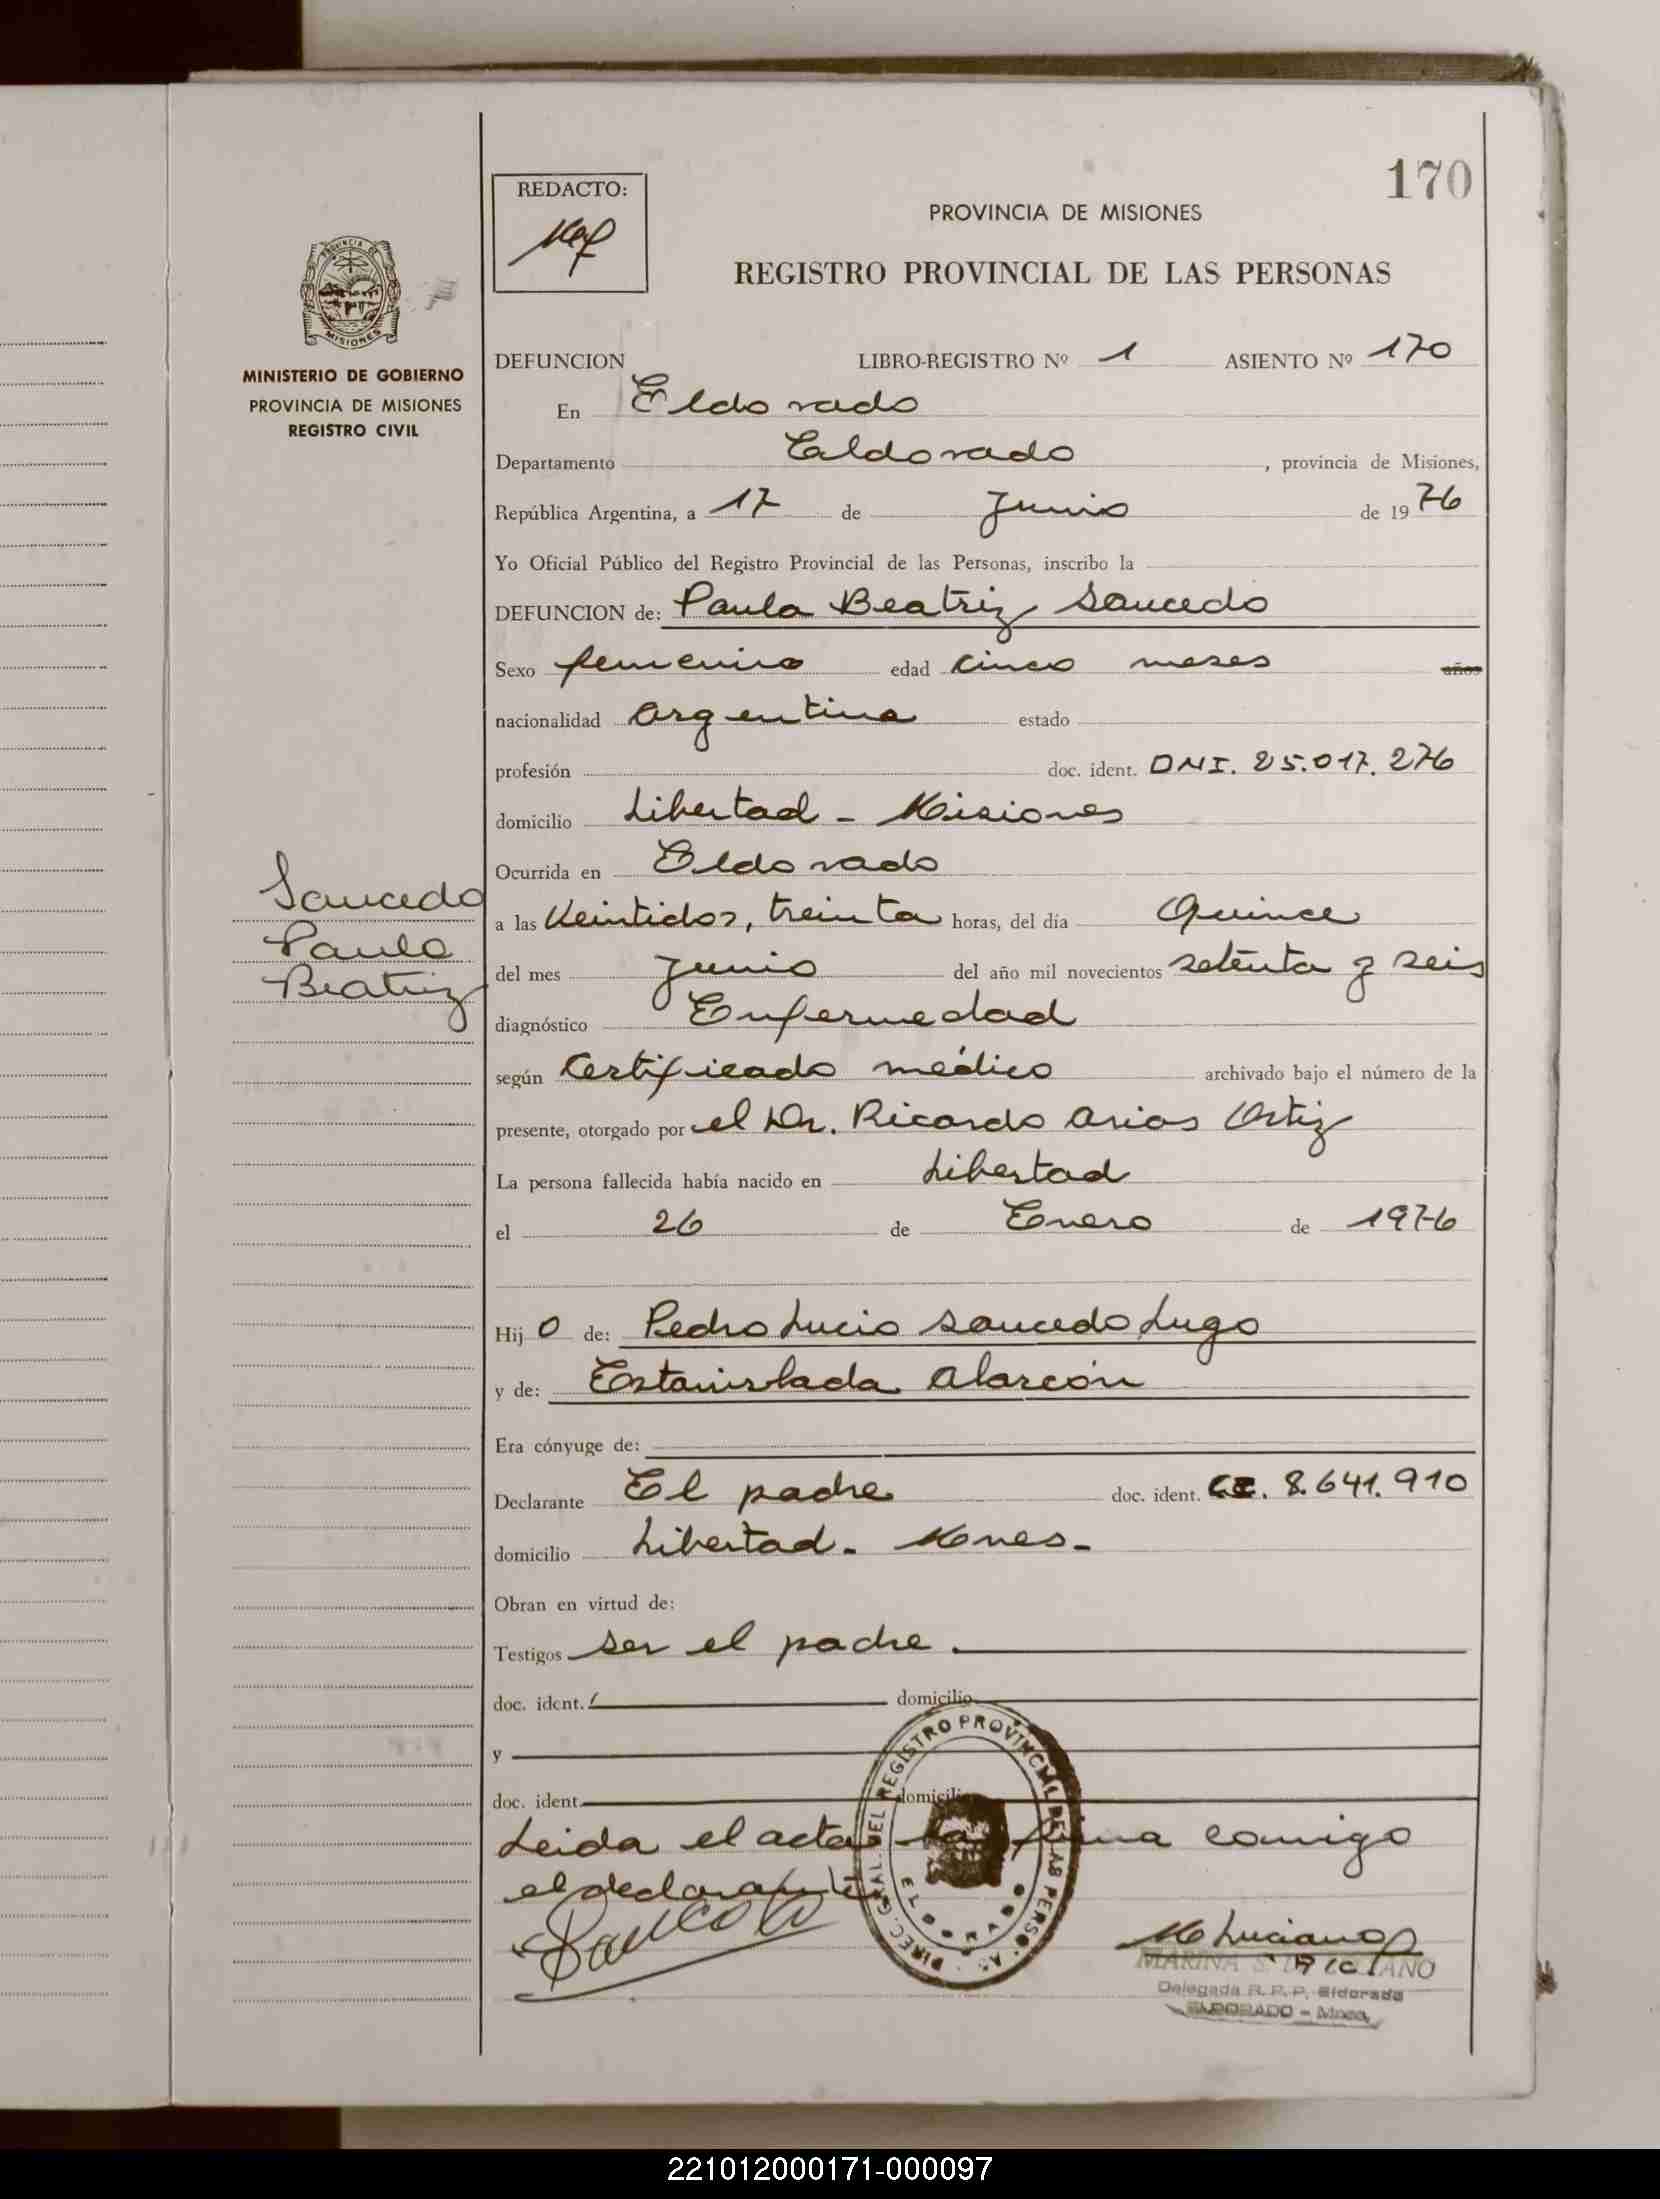 170
REDACTO:
PROVINCIA DE MISIONES
REGISTRO PROVINCIAL DE LAS PERSONAS
PROVINCIA DE
MISIONES
MINISTERIO DE GOBIERNO
PROVINCIA DE MISIONES
REGISTRO CIVIL
DEFUNCION LIBRO-REGISTRO Nº 1 ASIENTO Nº 170
En Eldorado
Departamento Eldorado, provincia de Misiones,
República Argentina, a 17 de Junio de 1976
Yo Oficial Público del Registro Provincial de las Personas, inscribo la
DEFUNCION de: Paula Beatriz Saucedo
Sexo femenino edad cinco meses años
nacionalidad argentina estado
profesión doc. ident. DNI. 25.017.276
domicilio Libertad - Misiones
Ocurrida en Eldorado
Saucedo
Paula
Beatriz
a las Veintidos, treinta horas, del día Quince
del mes Junio del año mil novecientos setenta y seis
diagnóstico Enfermedad
según Certificado médico archivado bajo el número de la
presente, otorgado por el Dr. Ricardo Arias Ortiz
La persona fallecida había nacido en Libertad
el 26 de Enero de 1976
Hij o de: Pedro Lucio Saucedo Lugo
y de: Estanislada Alarcón
Era cónyuge de:
Declarante El padre doc. ident. CI. 8.641.910
domicilio Libertad - Mnes-
Obran en virtud de:
Testigos ser el padre.
doc. ident. domicilio
y
doc. ident. domicilio
Leida el acta la firma comigo
el declarante
DIREC. GRAL. DEL REGISTRO PROVINCIAL DE LAS PERSONAS
ELDORADO
Saucedo
M Luciano
MARINA LUCIANO
Delegada R. P. P. Eldorado
ELDORADO - Mnes.
221012000171-000097